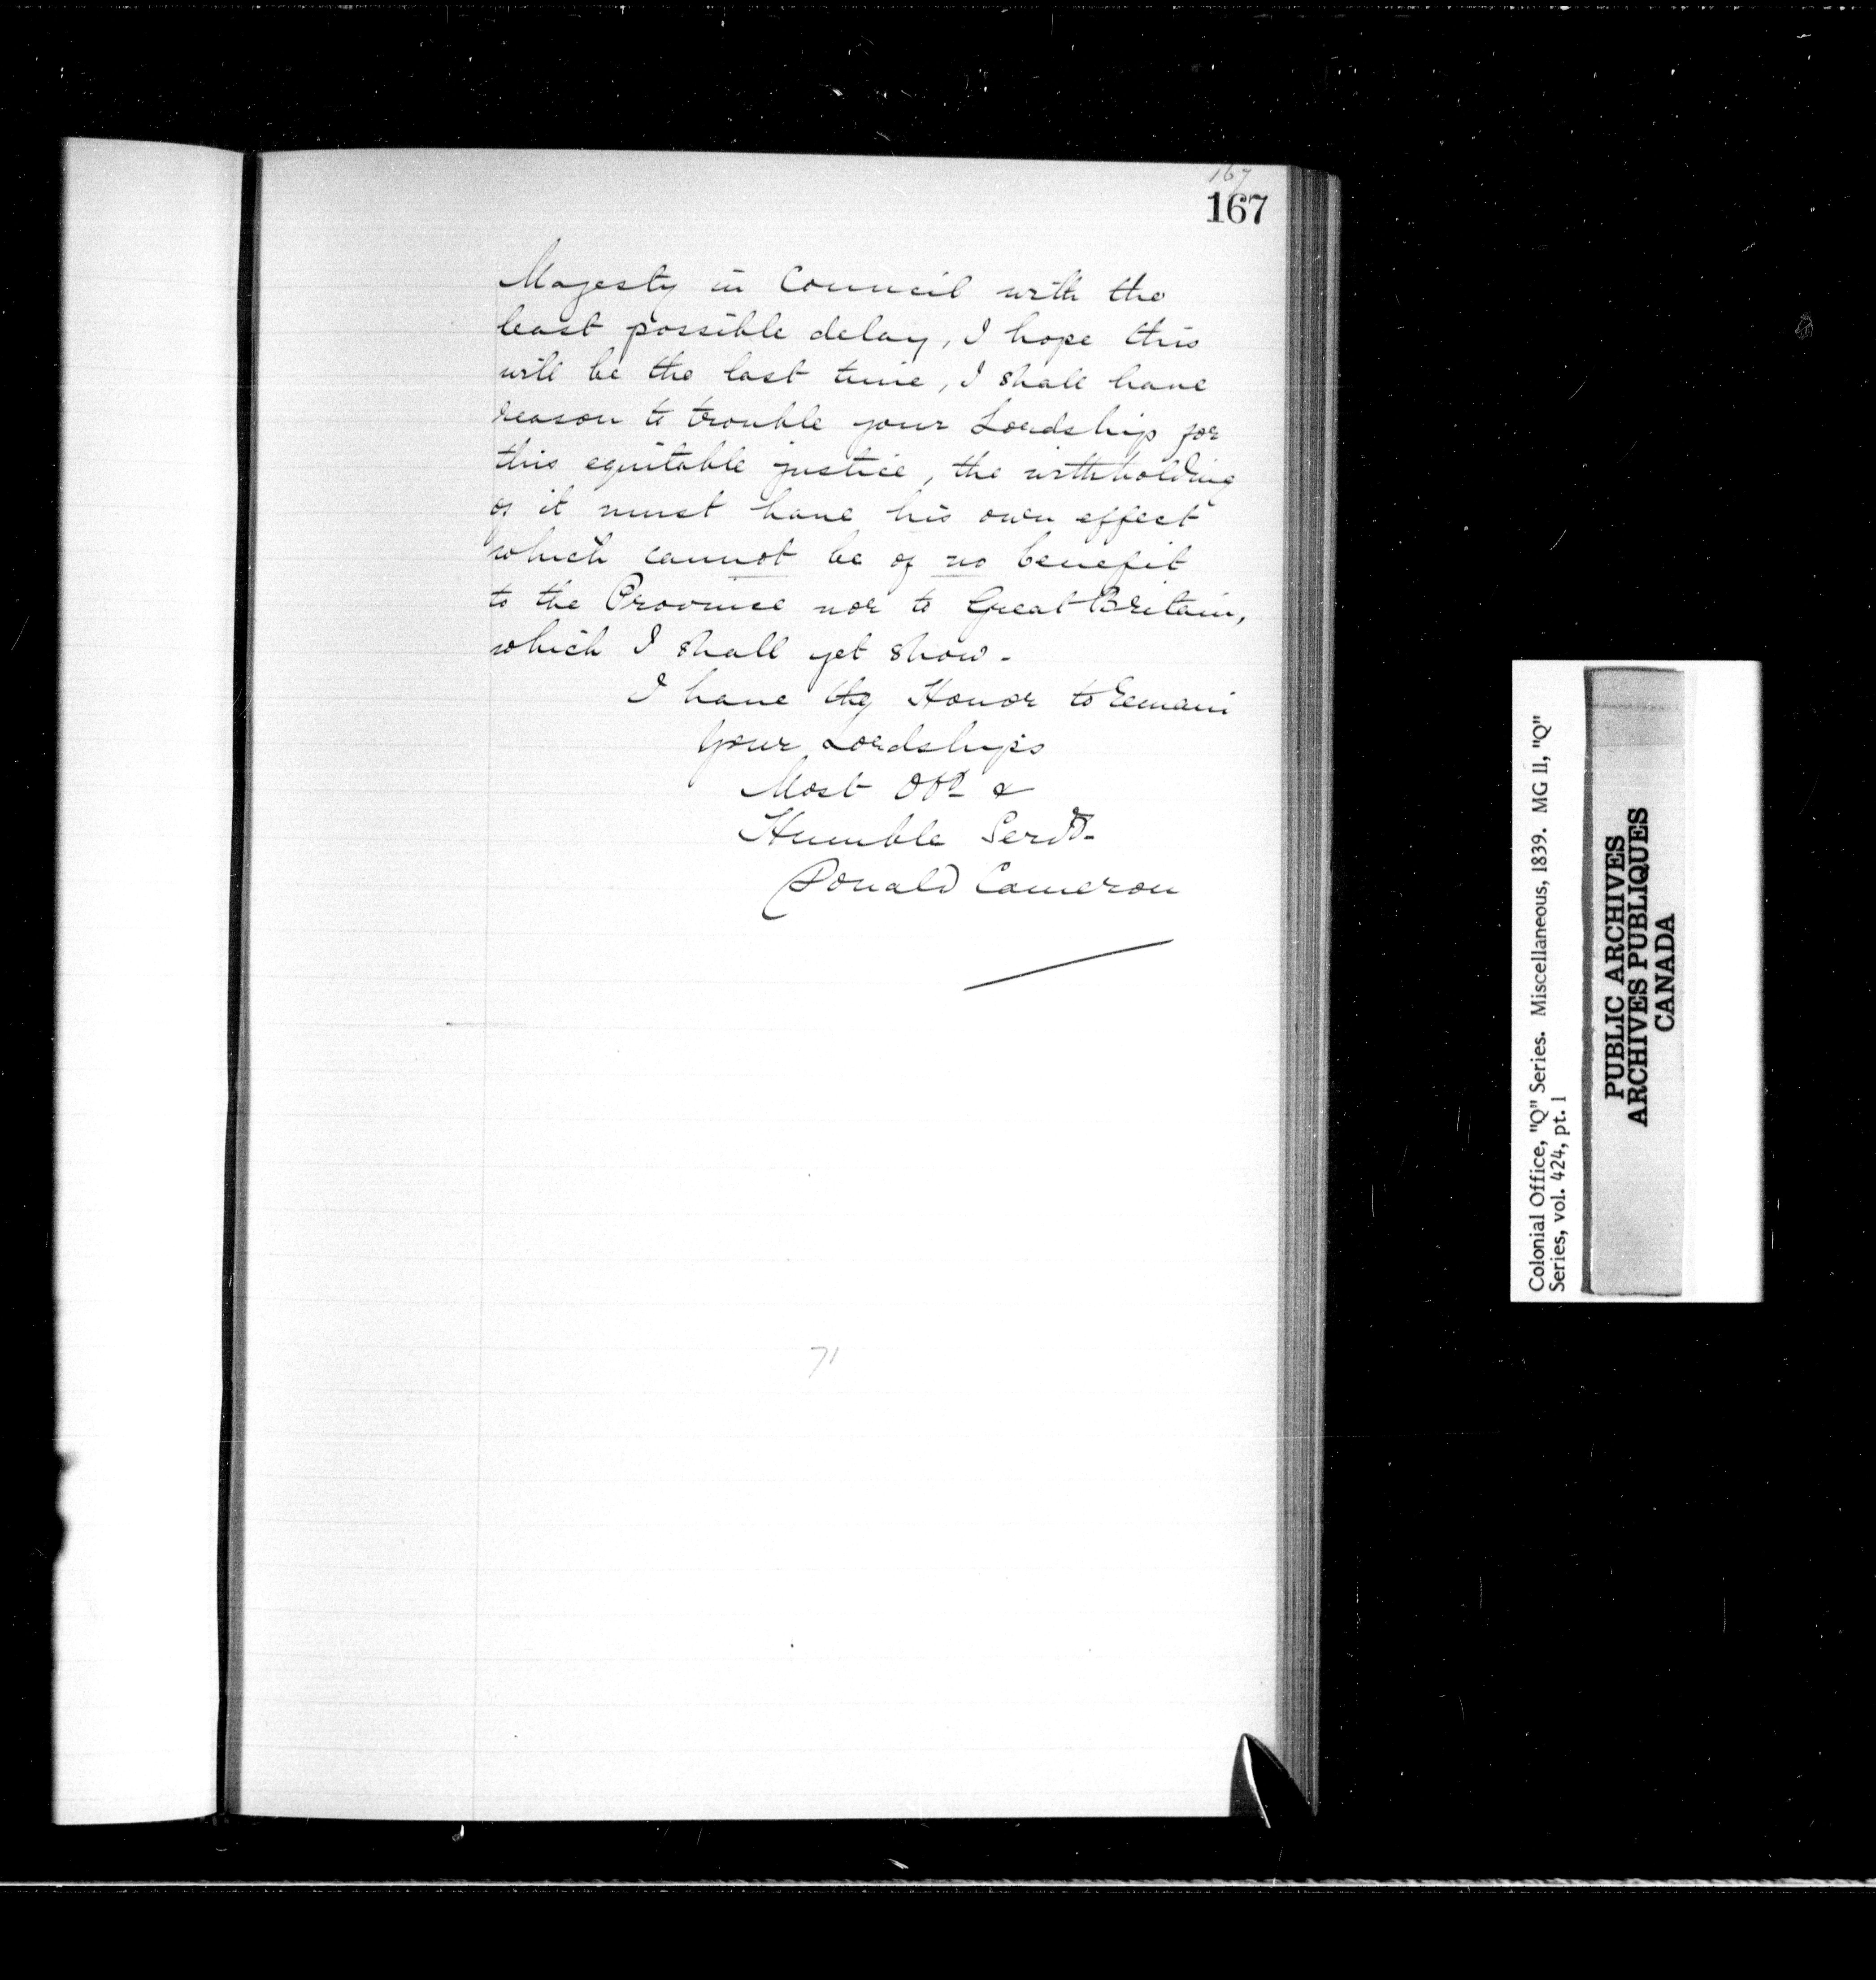 167
167
Majesty in Council with the
least possible delay, I hope this
will be the last time, I shall have
reason to trouble your Lordship for
this equitable justice, the withholding
of it must have his own effect
which cannot be of no benefit
to the Province nor to Great Britain,
which I shall yet show.
I have the Honor to remain
Your Lordships
Most Obt &
Humble Servt.
Donald Cameron
71
Colonial Office, "Q" Series. Miscellaneous, 1839. MG 11, "Q"
Series, vol. 424, pt. 1
PUBLIC ARCHIVES
ARCHIVES PUBLIQUES
CANADA